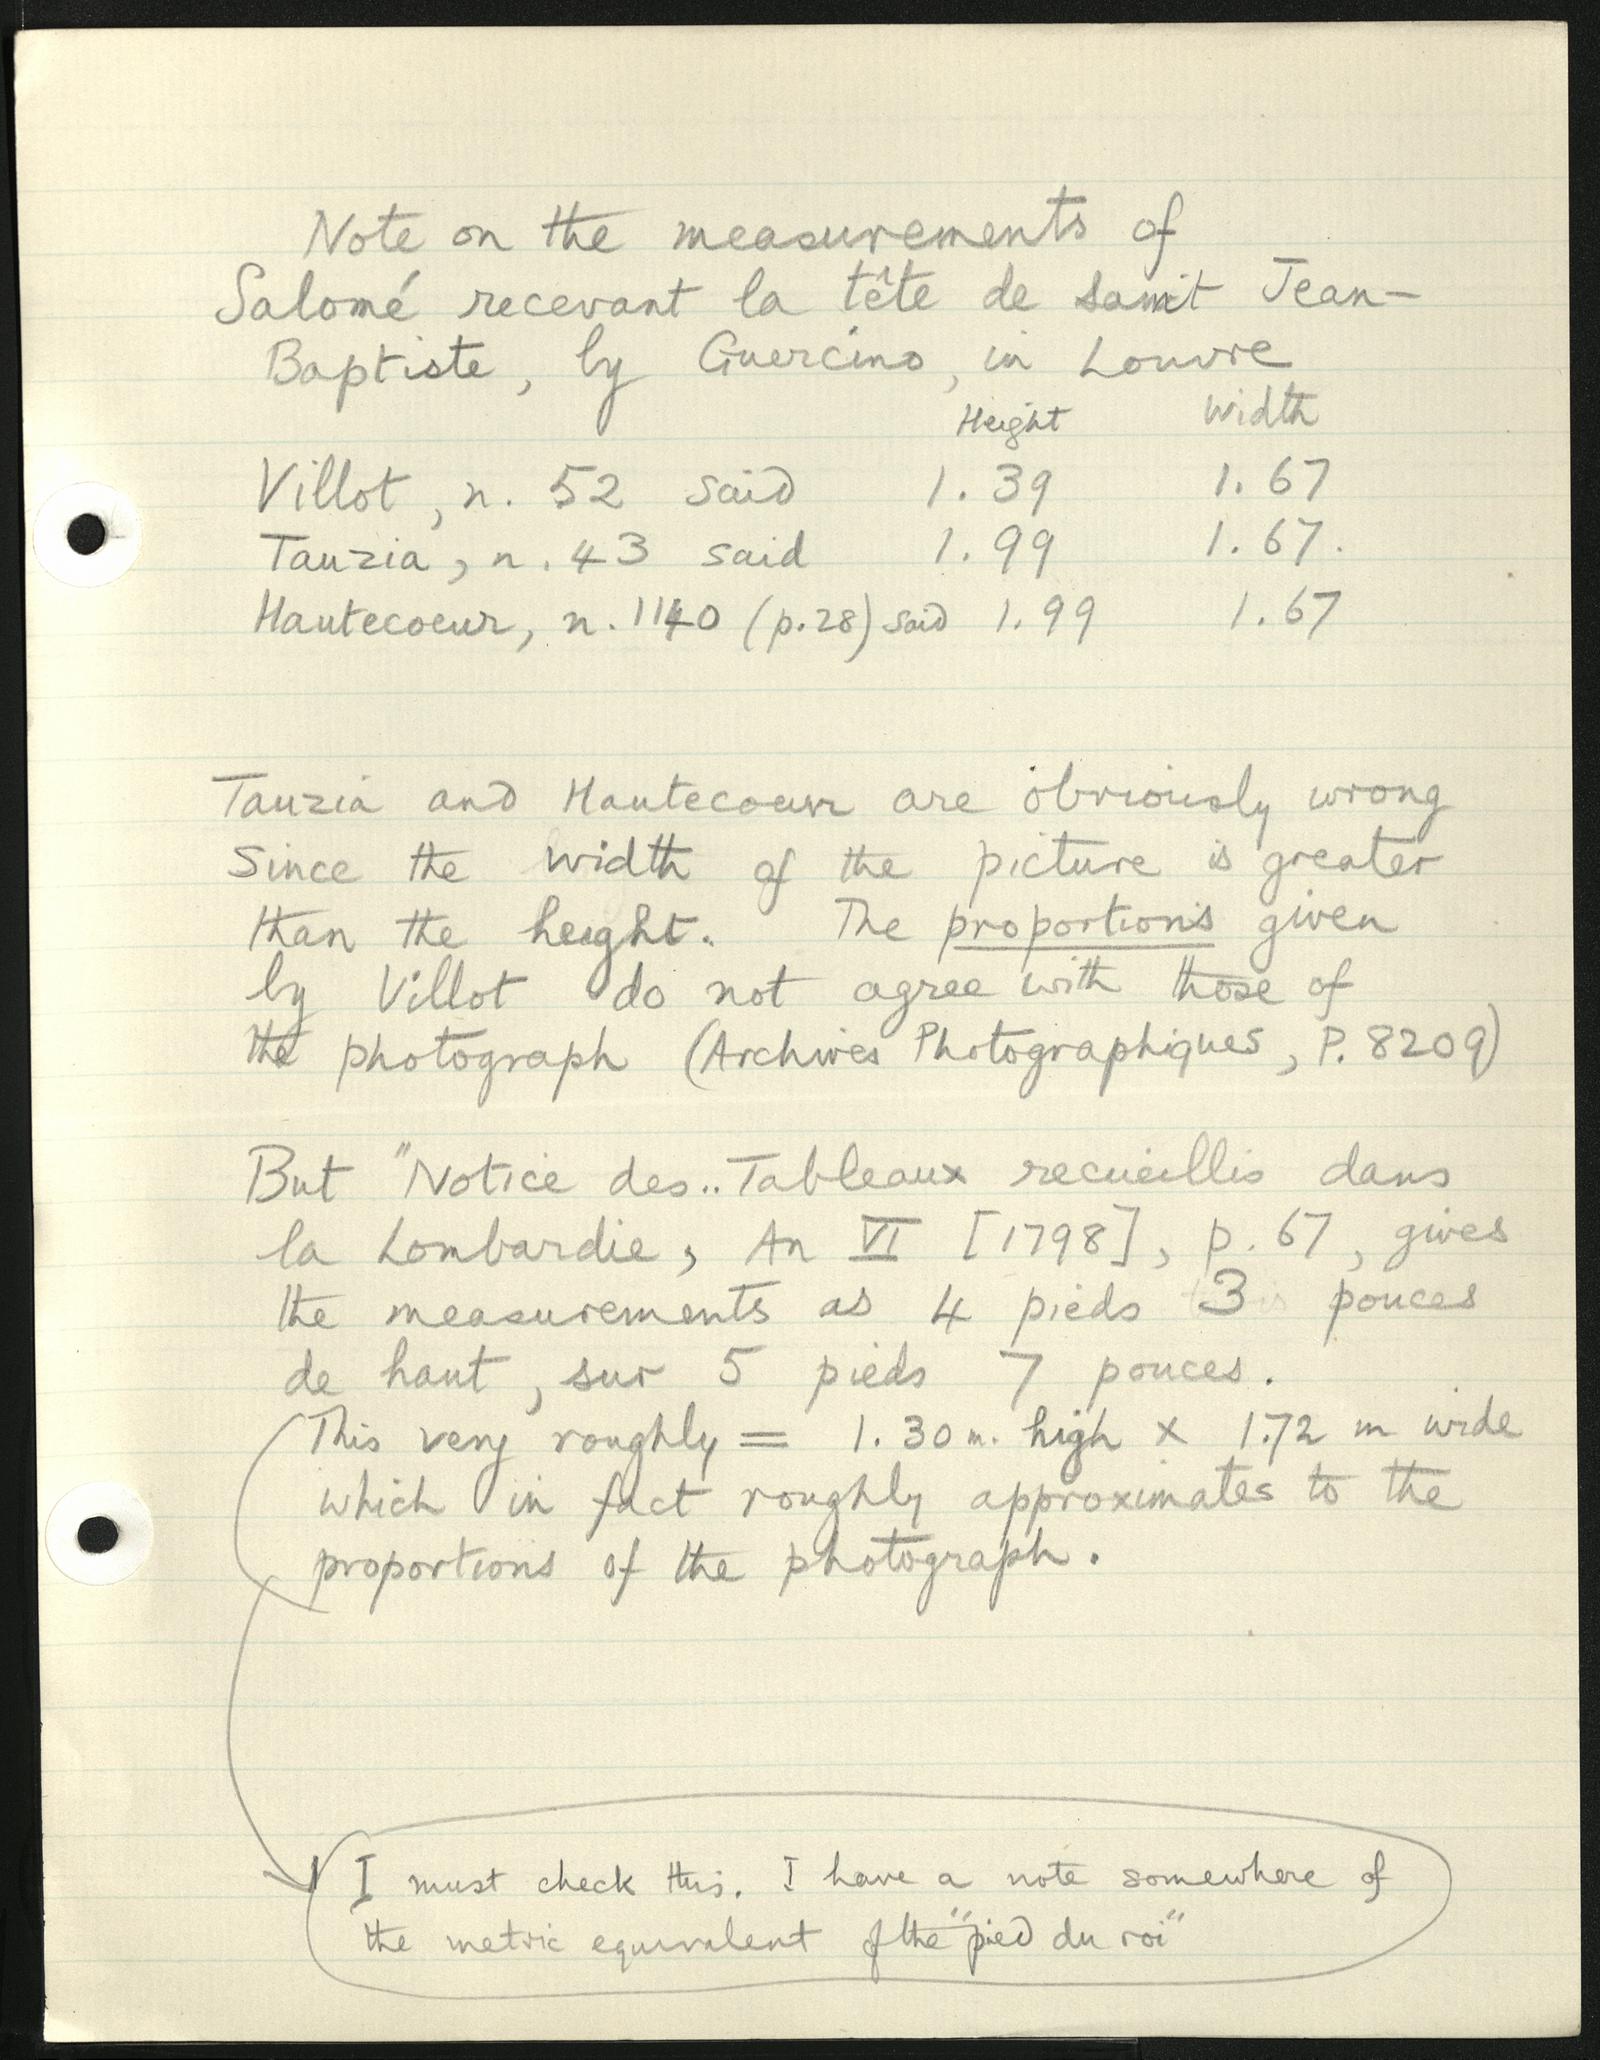 Note on the measurements of
Salomé recevant la tête de saint Jean-
Baptiste, by Guercino, in Louvre
Height Width
Villot, n. 52 said 1.39 1.67
Tauzia, n. 43 said 1.99 1.67.
Hautecoeur, n. 1140 (p. 28) said 1.99 1.67
Tauzia and Hautecoeur are obviously wrong
since the width of the picture is greater
than the height. The proportions given
by Villot do not agree with those of
the photograph (Archives Photographiques, P. 8209)
But "Notice des.. Tableaux recueillis dans
la Lombardie, An VI [1798], p. 67, gives
the measurements as 4 pieds 3 pouces
de haut, sur 5 pieds 7 pouces.
(This very roughly = 1.30 m. high x 1.72 m wide
which in fact roughly approximates to the
proportions of the photograph.
I must check this. I have a note somewhere of
the metric equivalent of the "pied du roi"